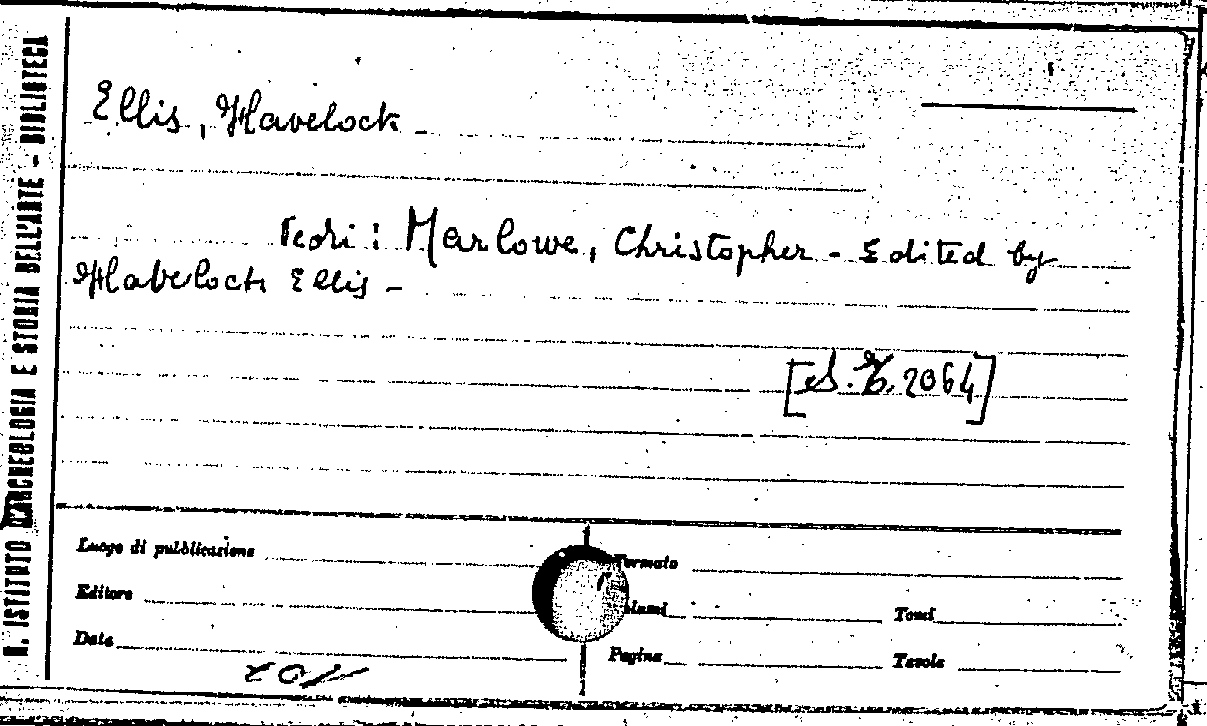 R. ISTITUTO D'ARCHEOLOGIA E STORIA DELL'ARTE - BIBLIOTECA
Ellis, Havelock -
Vedi: Marlowe, Christopher - Edited by
Havelock Ellis -
2064]
Luogo di pubblicazione
Formato
Editore
lumi
Tomi
Data
Pagine
Tavole